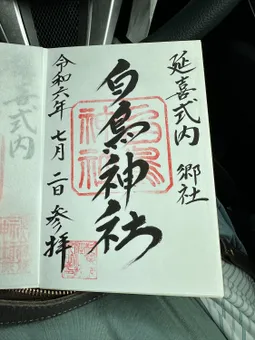 延喜式内 郷社
白鳥神社
令和六年 七月二日 参拝
式内